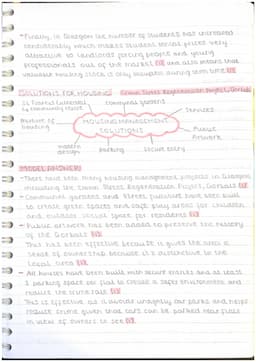 • Finally, in Glasgow the number of students has increased
considerably which makes student rental prices very
attractive to landlords forcing people and young
professionals out of the market and also means that
valuable housing stock is only occupied during term time
SOLUTIONS FOR HOUSING: Crown Street Regeneration Project, Gorbals
communal gardens
services
mixture of
housing
HOUSING MANAGEMENT
SOLUTIONS
Public
Artwork
modern
design
parking
secure entry
MODEL ANSWER:
- There have been many housing management projects in Glasgow
including the Crown Street Regeneration Project, Gorbals
- Communal gardens and street furniture have been built
to create green spaces and safe play areas for children
and outdoor social space for residents
- Public artwork has been added to preserve the history
of the Gorbals
This has been effective because it gives the area a
sense of ownership because it's distinctive to the
local area
- All houses have been built with secure entries and at least
1 parking space per flat to create a safer environment and
reduce the crime rate
This is effective as it avoids unsightly car parks and helps
reduce crime given that cars can be parked near flats
in view of owners to see